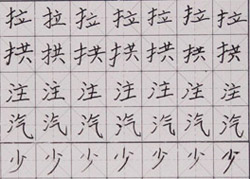 拉拉拉拉拉拉拉
拱拱拱拱拱拱拱
注注注注注注注
汽汽汽汽汽汽汽
少少少少少少少